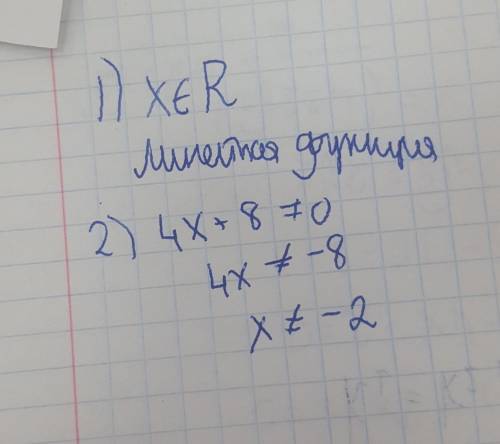 1) x ∈ R
линейная функция
2) 4x + 8 ≠ 0
4x ≠ -8
x ≠ -2